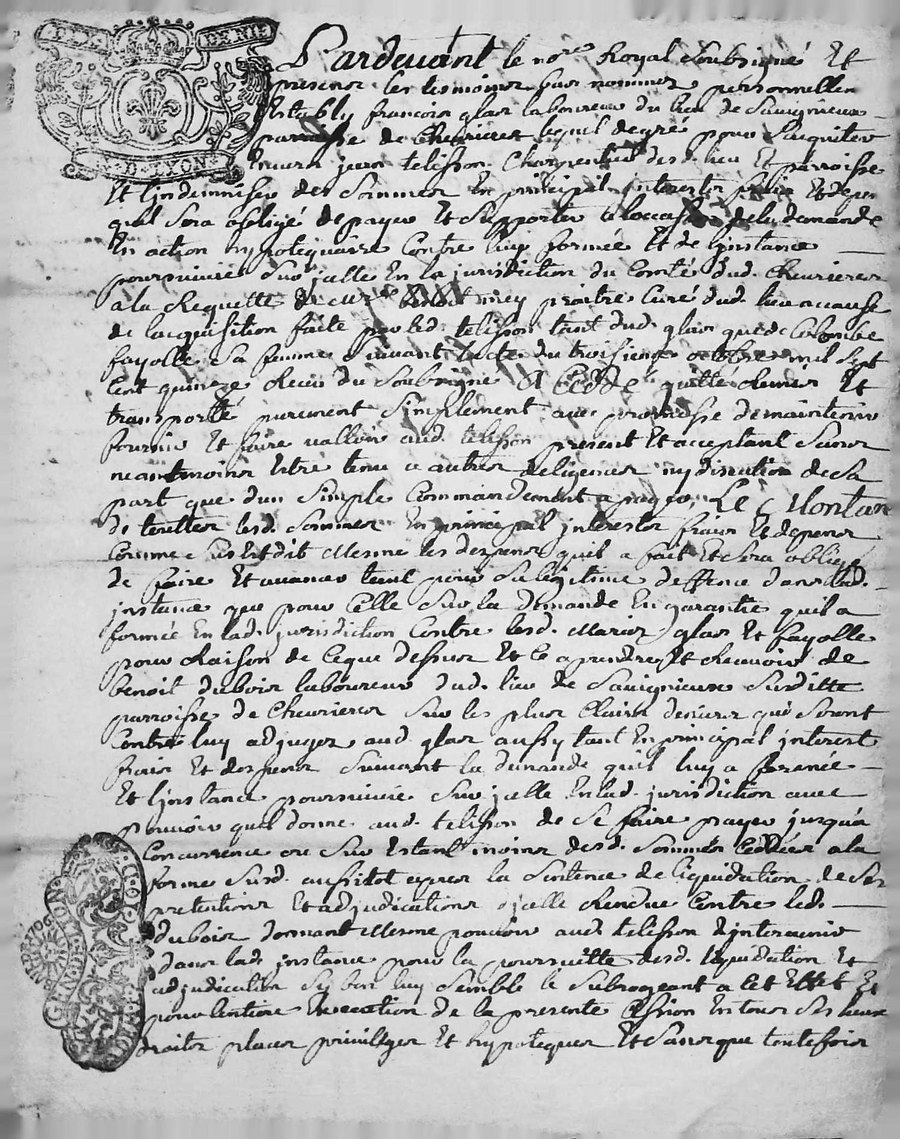 Pardevant le no.re Royal Soubsigné Et
presence les tesmoins bas nommez personnellem
Estably françois glas laboureur du lieu de Sauignieux
parroisse de Cheurieres lequel de gré pour Saquiter
enuers jean telisson Charpentier dud. lieu Et parroisse
Et l'indemniser des Sommes En principal interestz frais Et depens
quil Sera obligé de payer Et Supporter a loccasion de la demande
En action hypotequaire Contre luy formée Et de Linstance
poursuiuie Sur jcelle En la jurisdiction du Comté dud. Cheurieres
a la Requette de Mre benoit mey prêtre Curé dud. lieu a cause
de lacquisition faite par led. telisson tant dud. glas que de Colombe
fayolle Sa femme Suiuant lacte du troisieme octobre mil Sept
Cent quinze Receu du Soubsigné A Cedé quitté Remis Et
transporté purement Simplement auec promesse de maintenir
fournir Et faire valloir aud. telisson present Et acceptant Sans
neantmoins Estre tenu a autres deligences ny discution de Sa
part que d'un Simple Commandement a payer, Le Montan
de touttes lesd. Sommes En principal interestz frais Et depens
Comme Sus Est dit Mesme les despens quil a fait Et Sera obligé
de faire Et auancer tant pour Sa legitime deffence dans lad.
jnstance que pour Celle Sur la demande En garantie quil a
formée En lad. jurisdiction Contre lesd. Mariez glas Et fayolle
pour Raison de Ceque dessus Et Ce a prendre Et Receuoir de
benoit dubois laboureur dud. lieu de Sauignieux Susditte
parroisse de Cheurieres Sur les plus Clairs deniers qui Seront
Contre luy adjugez aud. glas aussy tant En principal interest
frais Et despens Suiuant la demande quil luy a formée
Et Linstance poursuiuie Sur jcelle En lad. jurisdiction auec
pouuoir quil donne aud. telisson de Se faire payer jusqua
Concurrence ou Sur Estant moins desd. Sommes Cedées a la
forme Susd. aussitot apres la Sentence de Liquidation de Ses
pretentions Et adjudications djcelle Rendue Contre led.
dubois donnant Mesme pouuoir aud. telisson dinteruenir
dans lad. jnstance pour la poursuitte desd. liquidation Et
adjudication Sy bon luy Semble le Subrogeant a Cet Effet Et
pour lentiere Execution de la presente Cession En tous Ses lieux
droits places priuileges Et hypoteques Et Sans que toutefois
GEN. DE LYON